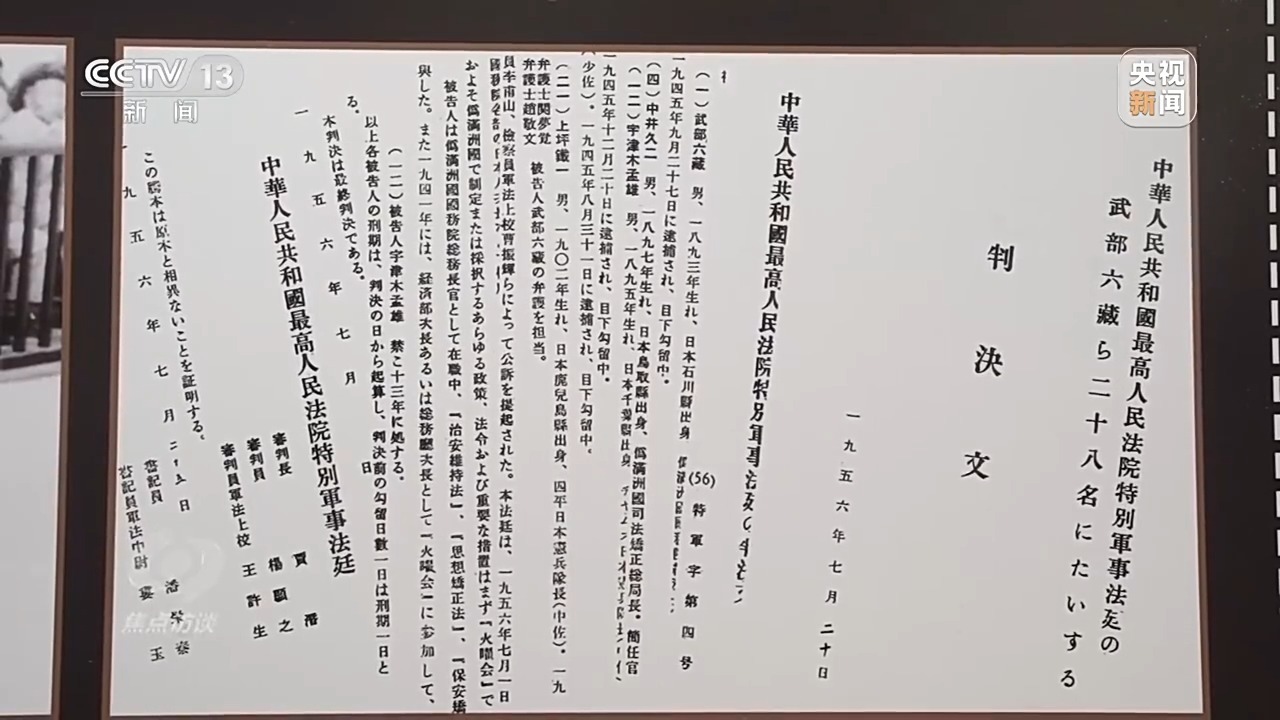 CCTV 13
新闻
央视
新闻
中華人民共和國最高人民法院特別軍事法廷の
武部六藏ら二十八名にたいする
判決文
一九五六年七月二十日
中華人民共和國最高人民法院特別軍事法廷の
(56) 特軍字第四号
(一) 武部六藏 男、一八九三年生れ、日本石川縣出身
一九四五年九月二十七日に逮捕され、目下勾留中。
(四) 中井久二 男、一八九七年生れ、日本鳥取縣出身、僞滿洲國司法矯正総局長。簡任官
(一二) 宇津木孟雄 男、一八九五年生れ、日本千葉縣出身
一九四五年十二月二十日に逮捕され、目下勾留中。
(少佐)。一九四五年八月三十一日に逮捕され、目下勾留中。
(二一) 上坪鐵一 男、一九〇二年生れ、日本鹿兒島縣出身、四平日本憲兵隊長(中佐)。一九
弁護士関夢覚
弁護士趙敬文 被告人武部六藏の弁護を担当。
員李甫山、檢察員軍法上校曹振輝らによって公訴を提起された。本法廷は、一九五六年七月一日
およそ僞滿洲國で制定または採択するあらゆる政策、法令および重要な措置はまず「火曜会」で
被告人は僞滿洲國國務院総務長官として在職中、『治安維持法』、『思想矯正法』、『保安矯
與した。また一九四一年には、経済部次長あるいは総務廳次長として「火曜会」に参加して、
(一二) 被告人宇津木孟雄 禁こ十三年に処する。
以上各被告人の刑期は、判決の日から起算し、判決前の勾留日數一日は刑期一日と
る。
本判決は最終判決である。
一九五六年七月 日
中華人民共和國最高人民法院特別軍事法廷
審判長 賈潛
審判員 楊顕之
審判員軍法上校 王許生
この謄本は原本と相異ないことを証明する。
一九五六年七月二十五日
書記員
書記員軍法中尉
焦点访谈